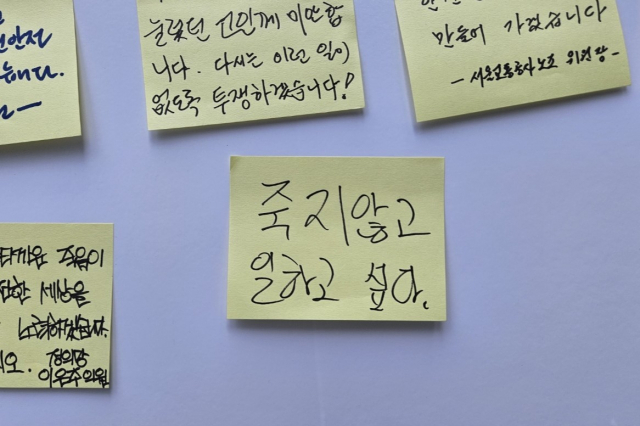 다.
늘 겪던 고인께 미안합
니다. 다시는 이런 일이
없도록 투쟁하겠습니다!
만들어 가겠습니다
- 서울교통공사노조 위원장 -
죽지않고
일하고 싶아.
죽음이
세상을
노력하겠습니다.
정의당
이은주의원